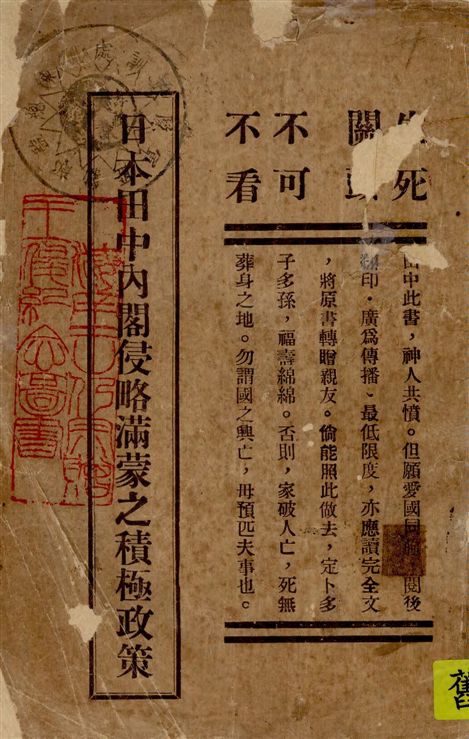 死
關
不可
不看
田中此書，神人共憤。但願愛國同
印．廣爲傳播、最低限度，亦應讀完全文
，將原書轉贈親友。倘能照此做去，定卜多
子多孫，福壽綿綿。否則，家破人亡，死無
葬身之地。勿謂國之興亡，毋預匹夫事也。
日本田中內閣侵略滿蒙之積極政策
舊